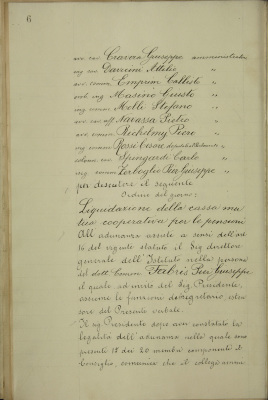 6
avv. cav. Cravera Giuseppe amministratore
ing. cav. Darvini Attilio "
avv. comm. Emprim Callisto "
Masino Questo "
ing. comm. Mille Stefano "
avv. cav. uff. Navassa Pietro "
avv. comm. Bechelmy Piero "
ing. comm. Rossi Cesare
Spingardi Carlo "
rag. comm. Zerboglio Pier Giuseppe "
per discutere il seguente
Ordine del giorno:
Liquidazione della cassa mu
tua cooperativa per le pensioni
All'adunanza assiste a sensi dell'art.
16 del vigente statuto il Sig. direttore
generale dell'Istituto nella persona
del dott. Comm. Fabris Pier Giuseppe
il quale, ad invito del Sig. Presidente,
assume le funzioni di segretario, esten
sore del Presente verbale.
Il sig. Presidente dopo aver constatata la
legalità dell'adunanza nella quale sono
presenti 18 dei 20 membri componenti il
Consiglio, comunica che il collegio